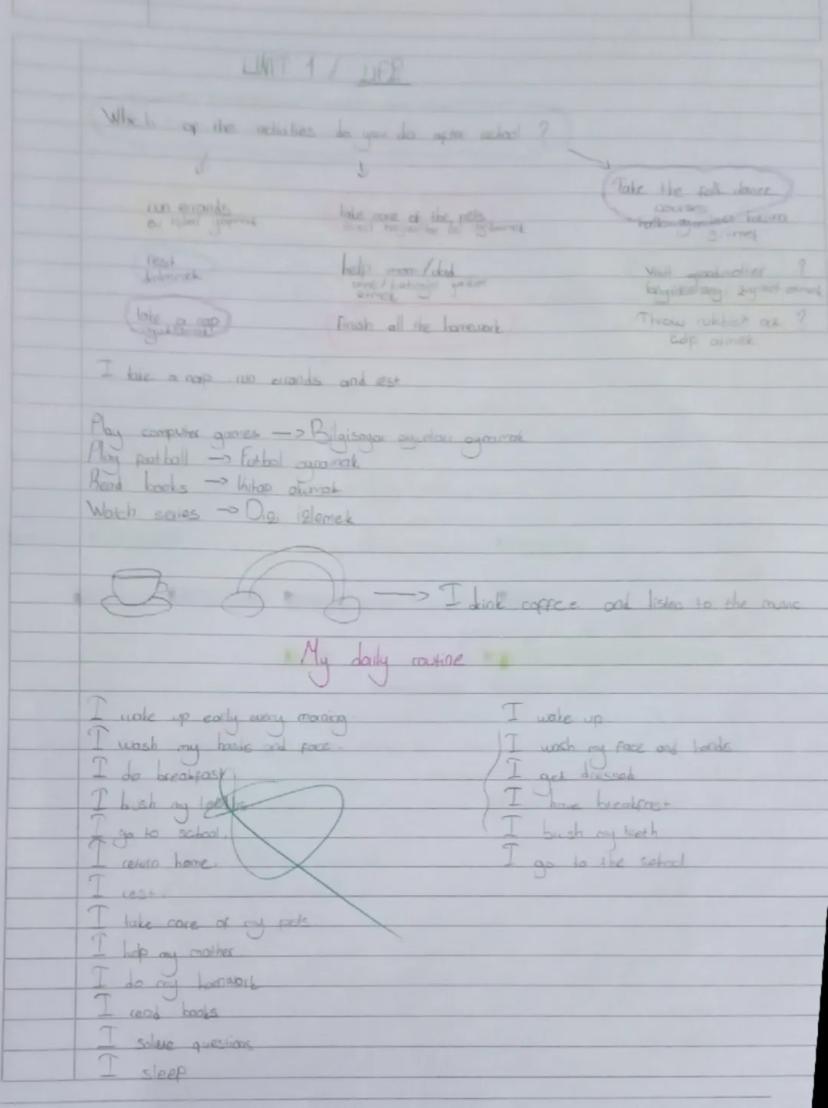 UNIT 1 / LIFE
Which of the activities do you do after school ?
Take the folk dance
courses
run errands
take care of the pets
rest
help mom/dad
visit grandmother ?
take a nap
Finish all the homework
Throw rubbish out ?
çöp atmak
I take a nap run errands and rest
Play computer games → Bilgisayar oyunları oynamak
Play football → Futbol oynamak
Read books → Kitap okumak
Watch series → Dizi izlemek
→ I drink coffee and listen to the music
My daily routine
I wake up early every morning
I wash my hands and face.
I do breakfast
I brush my teeth
I go to school.
I return home.
I rest.
I take care of my pets
I help my mother.
I do my homework
I read books
I solve questions
I sleep
I wake up
I wash my face and hands
I get dressed
I have breakfast
I brush my teeth
I go to the school